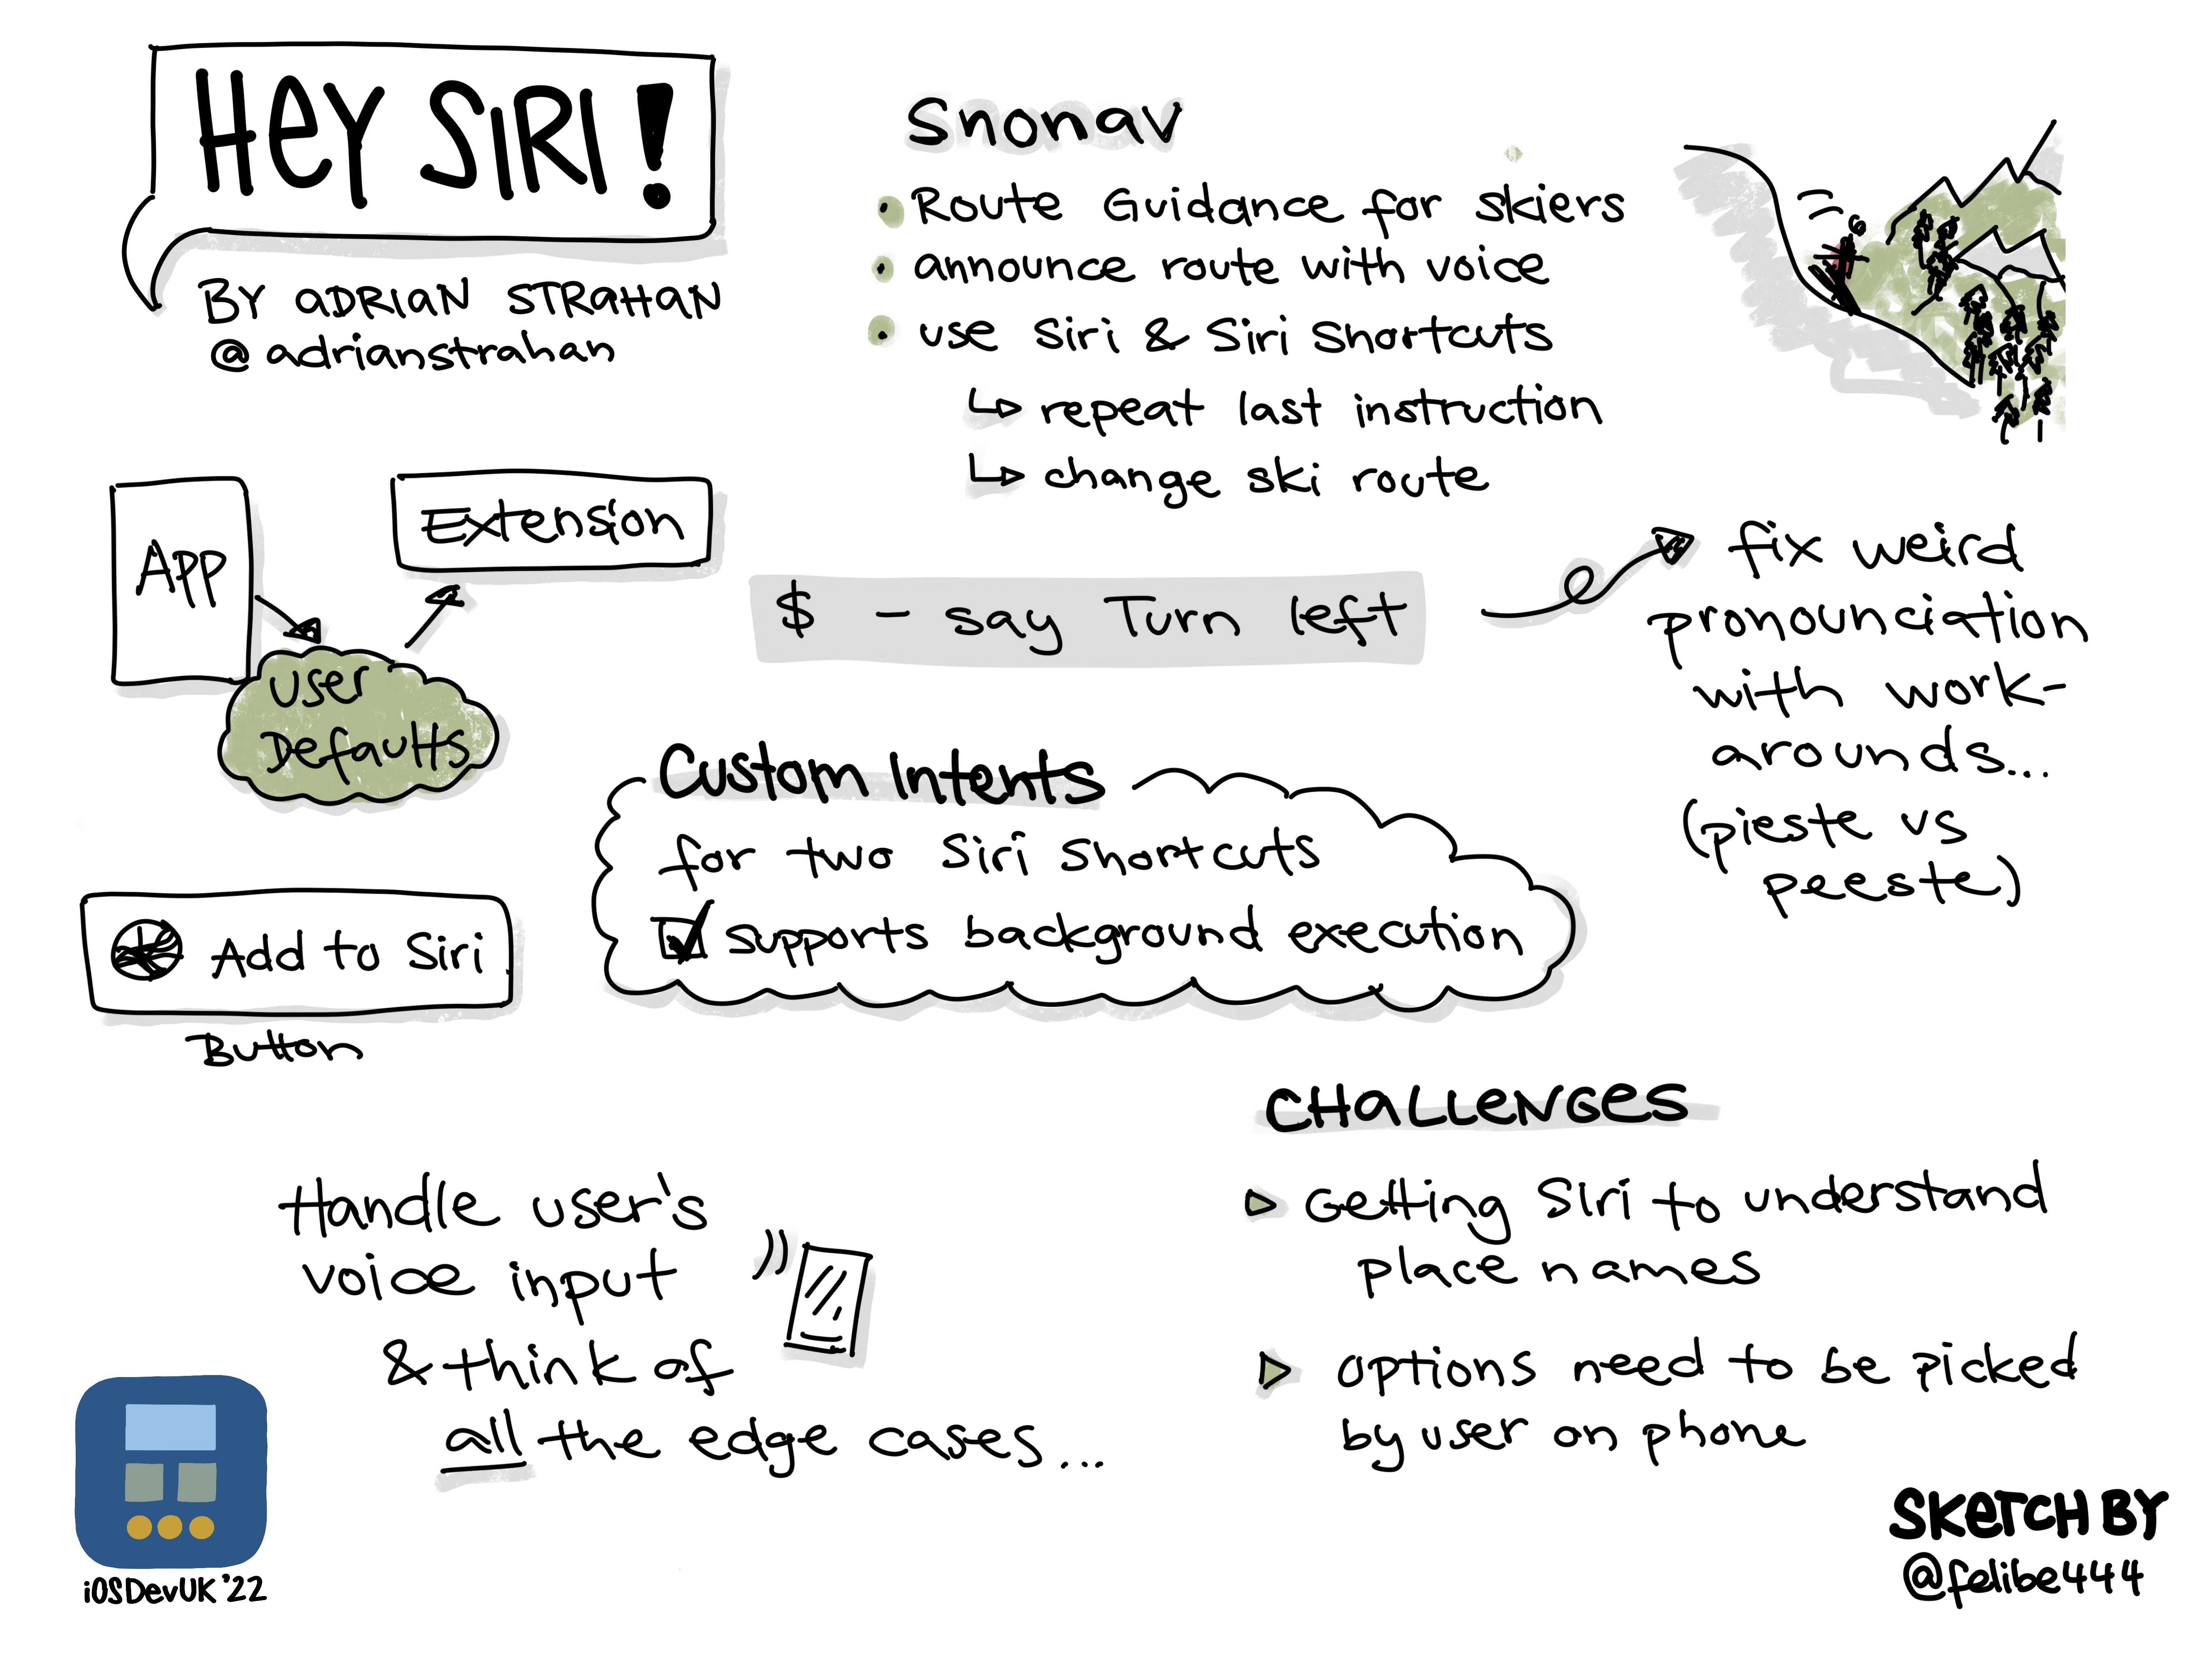 HEY SIRI!
BY ADRIAN STRAHAN
@adrianstrahan
Snonav
• Route Guidance for skiers
• announce route with voice
• use Siri & Siri Shortcuts
↳ repeat last instruction
↳ change ski route
App
Extension
User
Defaults
$ - say Turn left
fix weird
pronounciation
with work-
arounds...
(pieste vs
peeste)
Custom Intents
for two Siri Shortcuts
☑ supports background execution
Add to Siri
Button
CHALLENGES
▷ Getting Siri to understand
place names
▷ options need to be picked
by user on phone
Handle user's
voice input
& think of
all the edge cases...
iOSDevUK '22
SKETCH BY
@felibe444